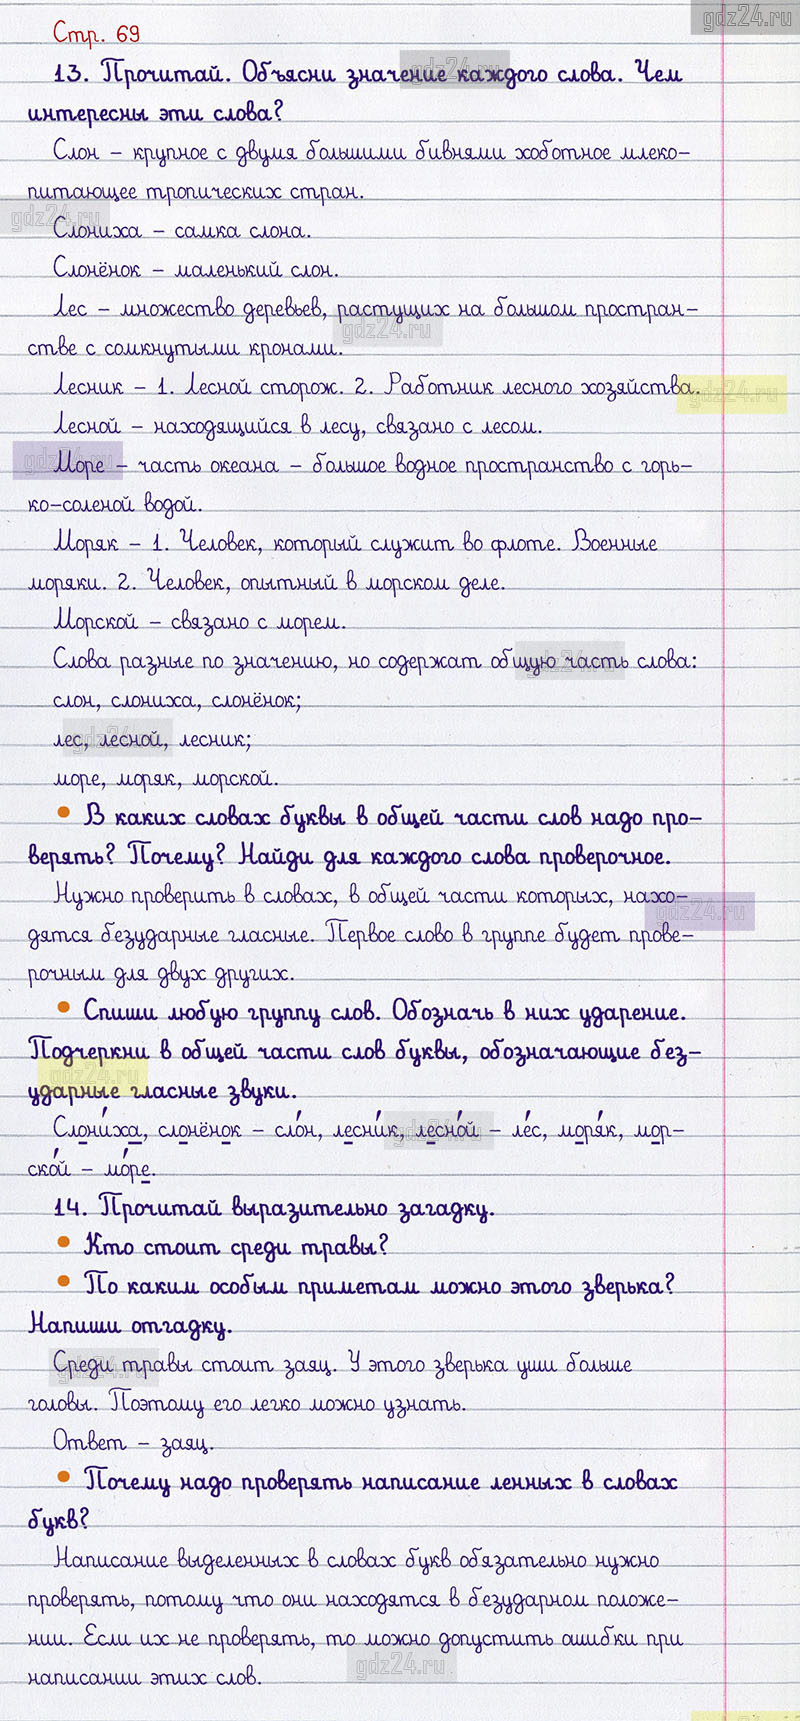 gdz24.ru
Стр. 69
13. Прочитай. Объясни значение каждого слова. Чем
интересны эти слова?
Слон – крупное с двумя большими бивнями хоботное млеко-
питающее тропических стран.
gdz24.ru
Слониха – самка слона.
Слонёнок – маленький слон.
Лес – множество деревьев, растущих на большом простран-
gdz24.ru
стве с сомкнутыми кронами.
Лесник – 1. Лесной сторож. 2. Работник лесного хозяйства.
gdz24.ru
Лесной – находящийся в лесу, связано с лесом.
Море – часть океана – большое водное пространство с горь-
ко-соленой водой.
Моряк – 1. Человек, который служит во флоте. Военные
моряки. 2. Человек, опытный в морском деле.
Морской – связано с морем.
Слова разные по значению, но содержат общую часть слова:
слон, слониха, слонёнок;
лес, лесной, лесник;
море, моряк, морской.
• В каких словах буквы в общей части слов надо про-
верять? Почему? Найди для каждого слова проверочное.
Нужно проверить в словах, в общей части которых, нахо-
gdz24.ru
дятся безударные гласные. Первое слово в группе будет прове-
рочным для двух других.
• Спиши любую группу слов. Обозначь в них ударение.
Подчеркни в общей части слов буквы, обозначающие без-
gdz24.ru
ударные гласные звуки.
Слони́ха, слонёнок – сло́н, лесни́к, лесно́й – ле́с, моря́к, мор-
ско́й – мо́ре.
14. Прочитай выразительно загадку.
• Кто стоит среди травы?
• По каким особым приметам можно этого зверька?
Напиши отгадку.
Среди травы стоит заяц. У этого зверька уши больше
головы. Поэтому его легко можно узнать.
Ответ – заяц.
• Почему надо проверять написание ленных в словах
букв?
Написание выделенных в словах букв обязательно нужно
проверять, потому что они находятся в безударном положе-
нии. Если их не проверять, то можно допустить ошибки при
gdz24.ru
написании этих слов.